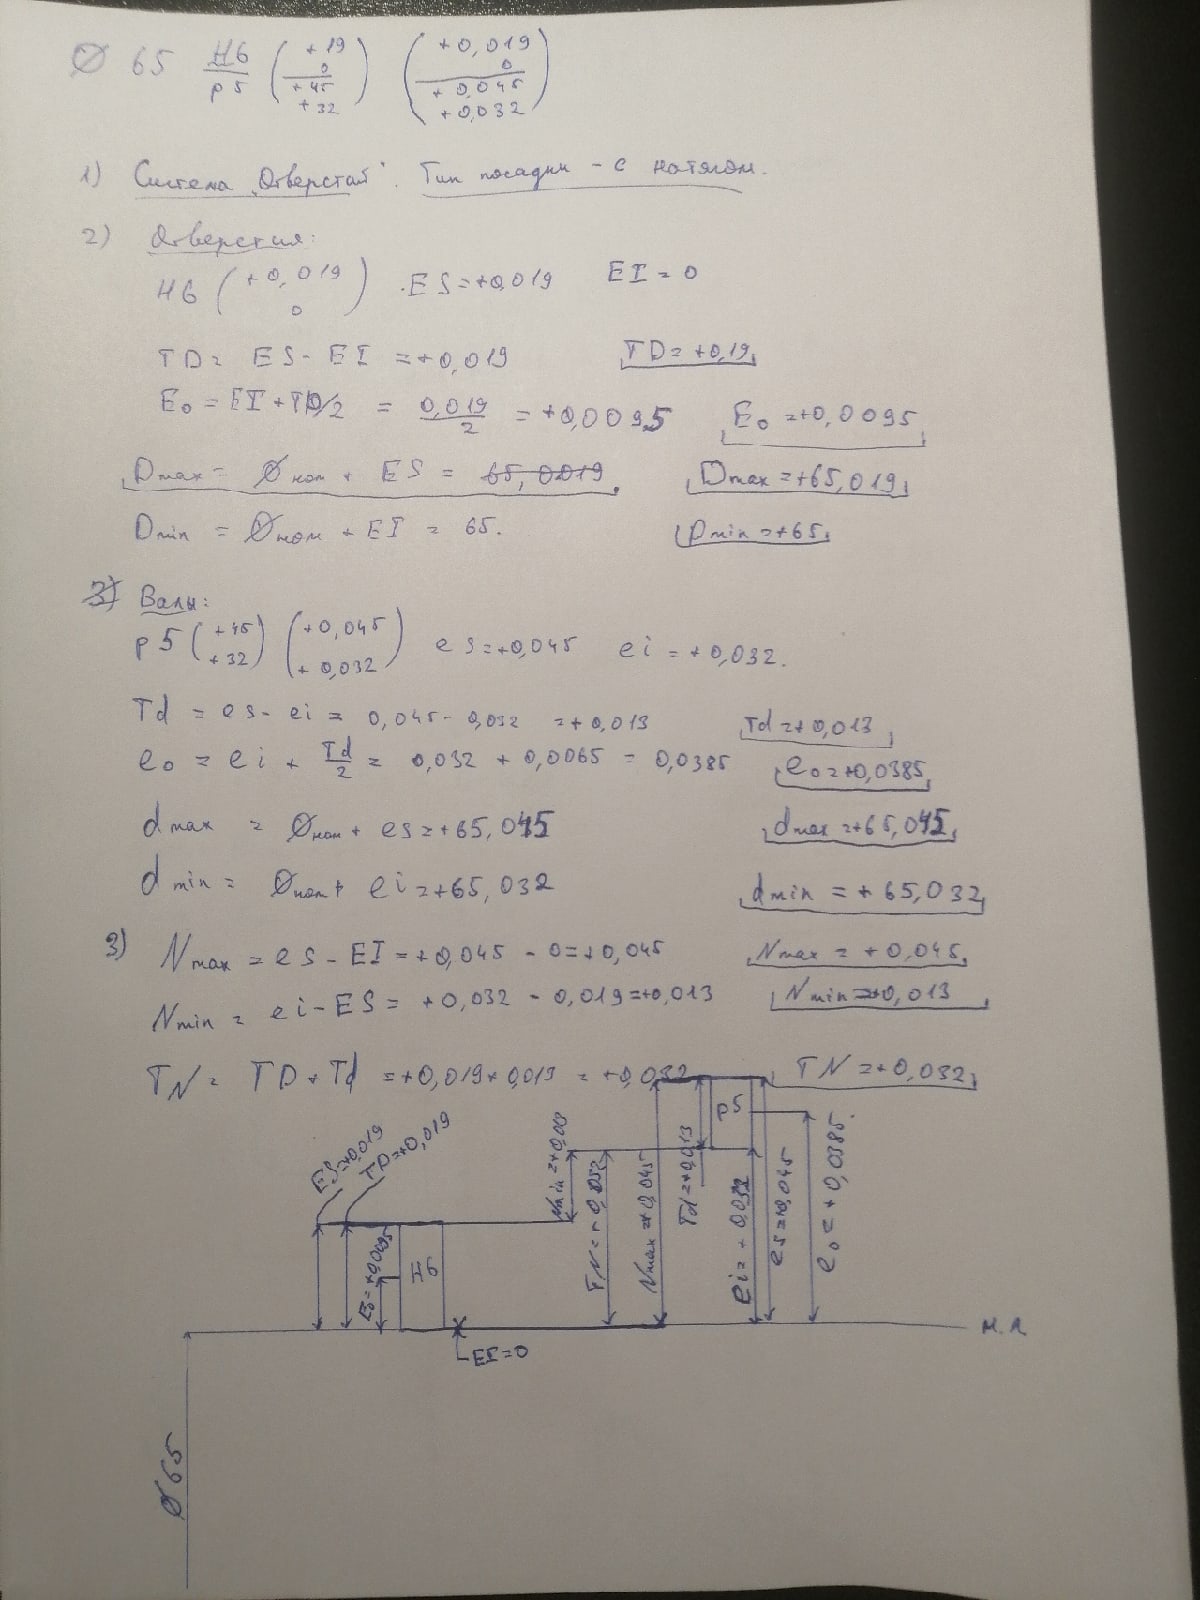 Ø 65 H6/p5 (+19 0 / +45 +32) (+0,019 0 / +0,045 +0,032)
1) Система "Отверстай". Тип посадки - с натягом.
2) Отверстия:
H6 (+0,019 0) . ES=+0,019 EI=0
TD= ES-EI =+0,019 TD=+0,19
E₀ = EI+TD/2 = 0,019/2 =+0,0095 E₀=+0,0095
Dmax= Øном + ES = 65,0019. Dmax=+65,019
Dmin = Øном + EI = 65. Dmin=+65
3) Валы:
p5 (+45 +32) (+0,045 +0,032) es=+0,045 ei=+0,032.
Td = es-ei = 0,045-0,032 =+0,013 Td=+0,013
e₀ = ei + Td/2 = 0,032 + 0,0065 = 0,0385 e₀=+0,0385
dmax = Øном + es=+65,045 dmax=+65,045
dmin = Øном+ ei=+65,032 dmin = +65,032
3) Nmax = es-EI=+0,045 - 0=+0,045 Nmax = +0,045
Nmin = ei-ES= +0,032 - 0,019=+0,013 Nmin=+0,013
TN = TD+Td =+0,019+0,013 = +0,032 TN=+0,032
ES=+0,019
TD=+0,019
E₀=+0,0095
H6
EI=0
TN=+0,032
Nmax=+0,045
Td=+0,013
p5
ei=+0,032
es=+0,045
e₀=+0,0385.
н.л
Ø65